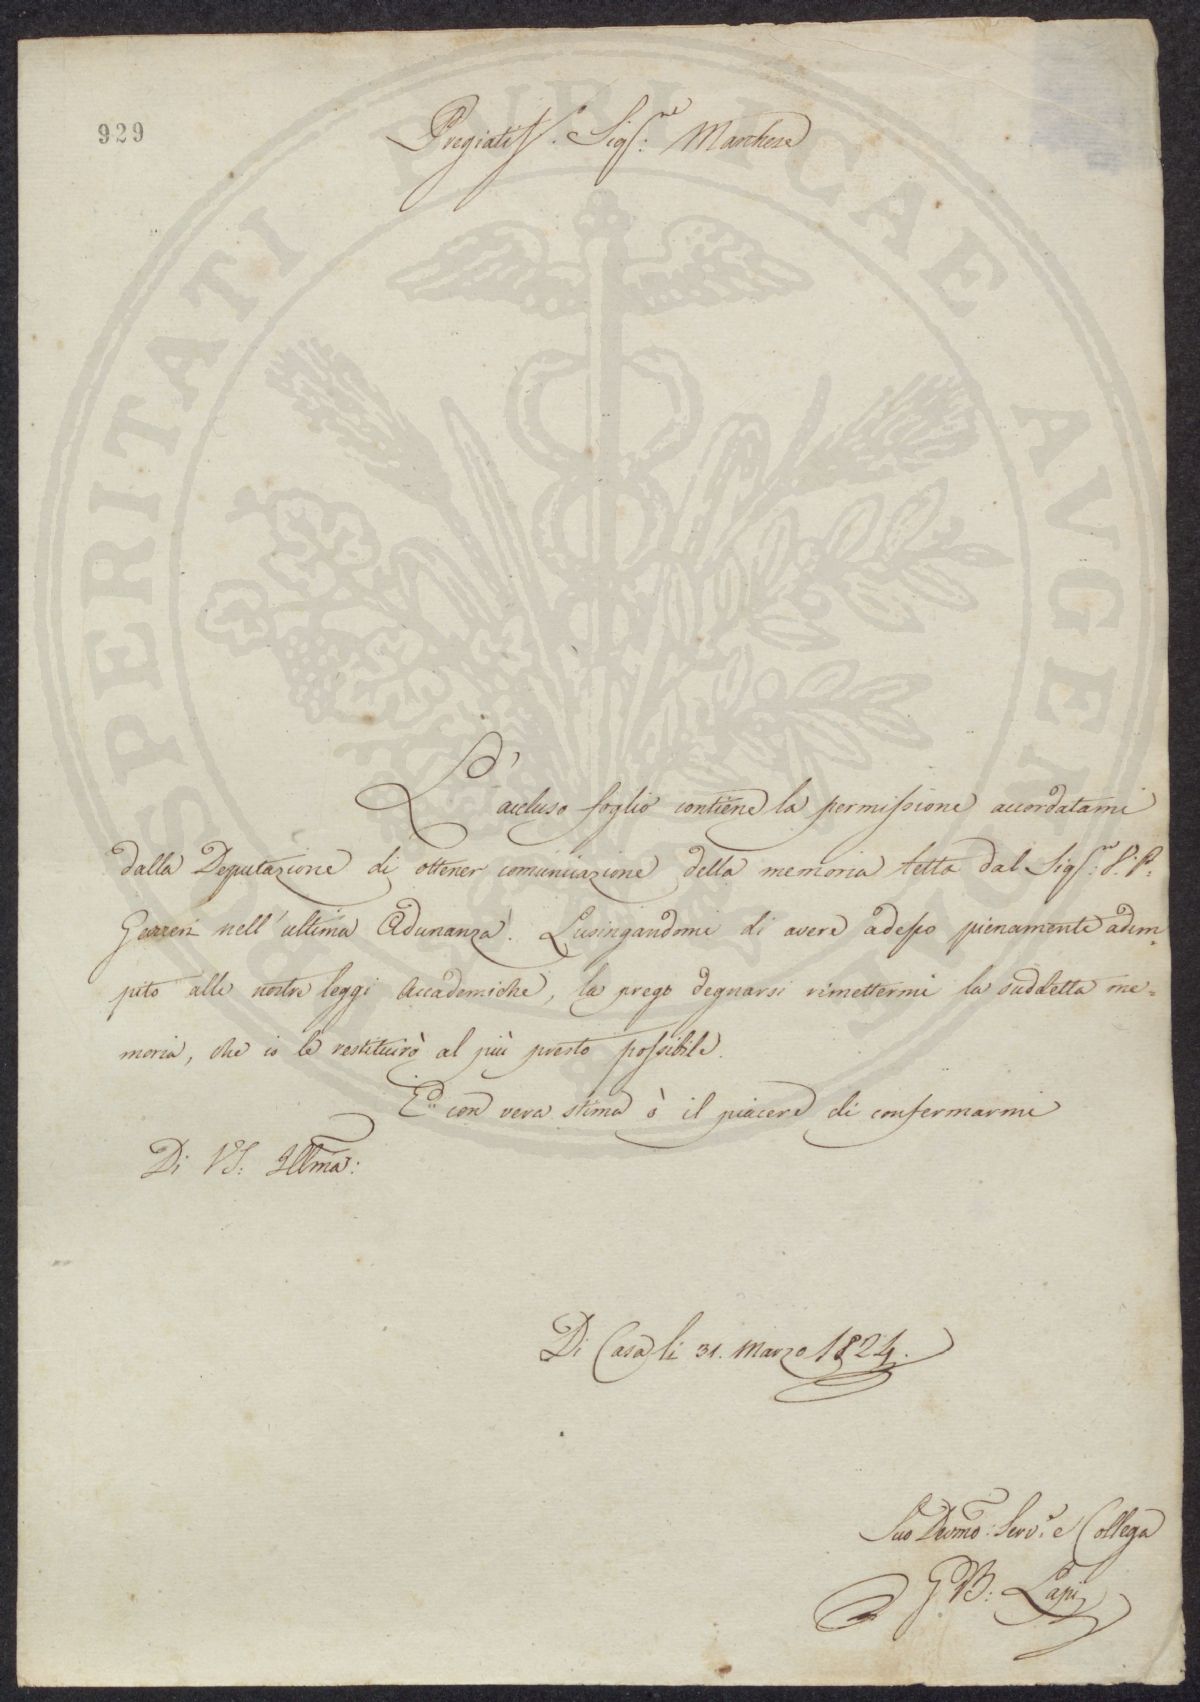 929
Pregiatiss. Sigr: Marchese
L'accluso foglio contiene la permissione accordatami
dalla Deputazione di ottener comunicazione della memoria letta dal Sigr: P. P.
nell'ultima Adunanza. Lusingandomi di avere adesso pienamente adem-
pito alle nostre leggi Accademiche, la prego degnarsi rimettermi la suddetta me=
moria, che io le restituirò al più presto possibile.
E con vera stima ò il piacere di confermarmi
Di VS: Illma:
Di Casa li 31. Marzo 1824.
Suo Devmo: Serve. e Collega
G B: Lapi
PROSPERITATI PUBLICAE AVGENDAE